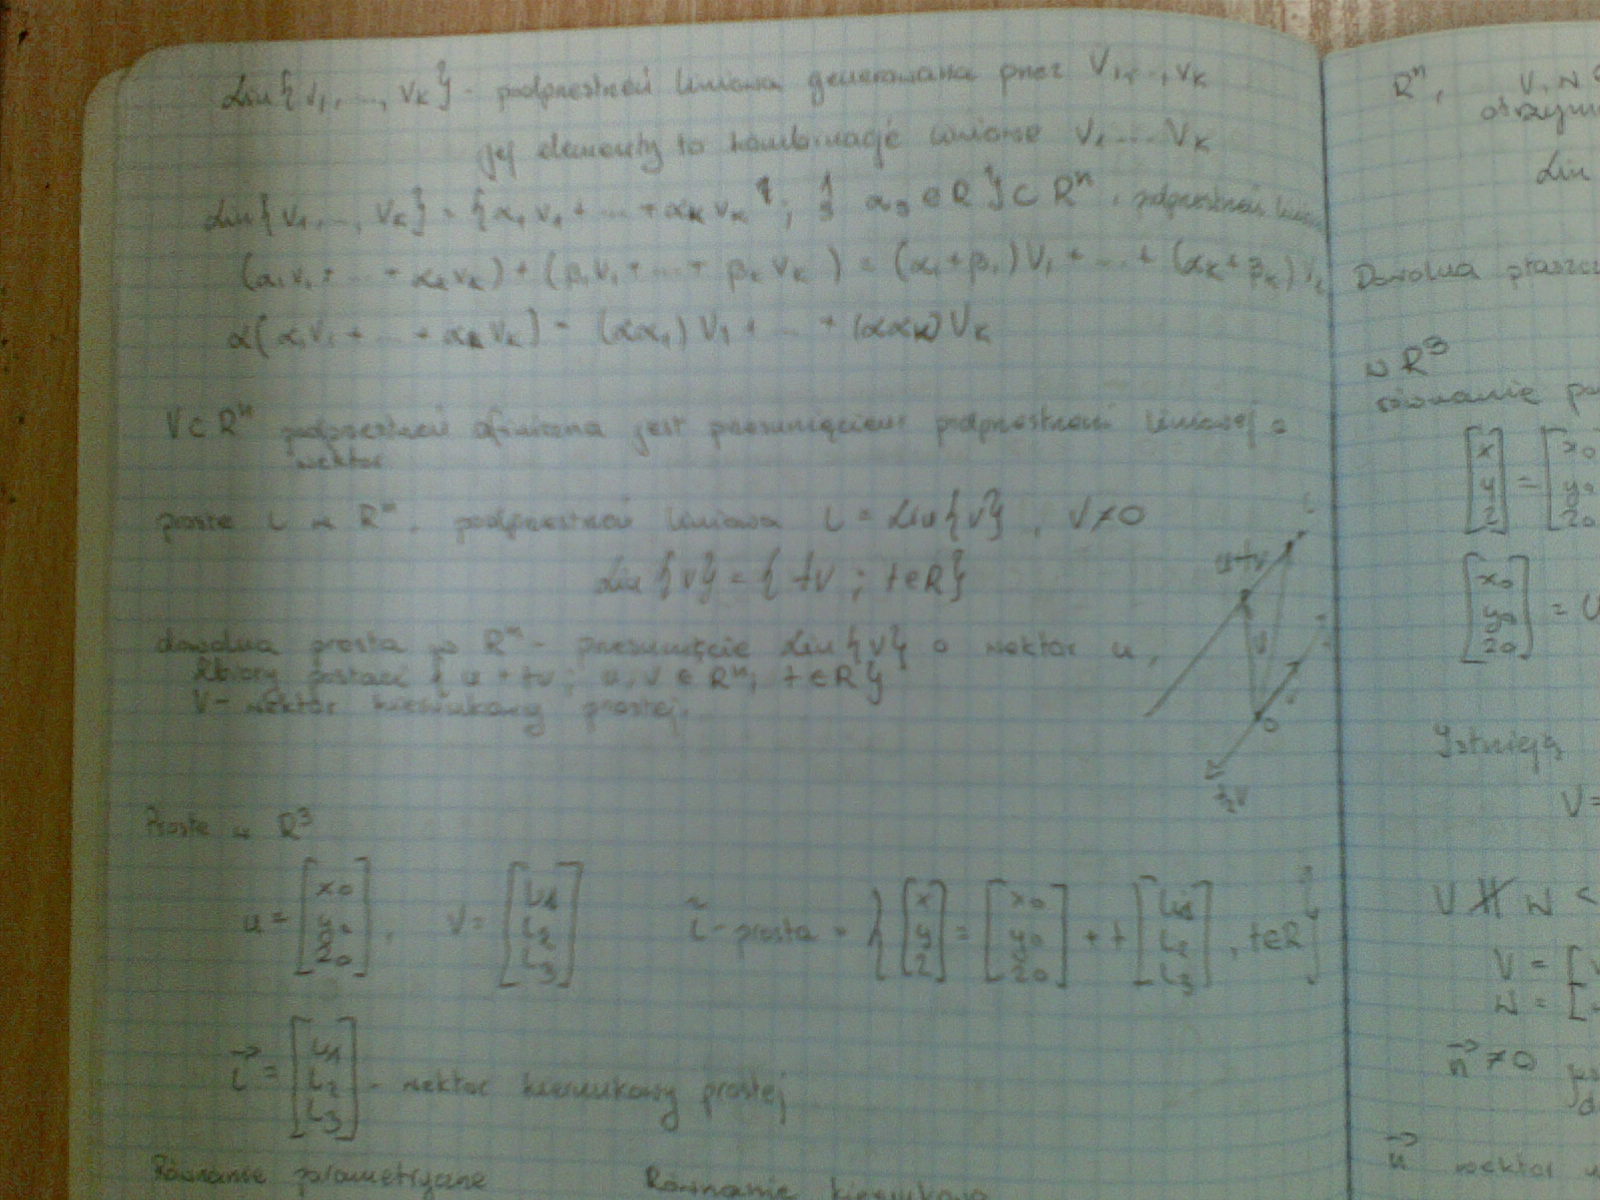 Lin{v₁, ..., vₖ} - podprzestrzeń liniowa generowana przez V₁, ..., vₖ
jej elementy to kombinacje liniowe V₁ ... Vₖ
Lin{v₁, ..., vₖ} = {α₁v₁ + ... + αₖvₖ ; ∈ R} ⊂ Rⁿ, podprzestrzeń
(α₁v₁ + ... + αₖvₖ) + (β₁v₁ + ... + βₖvₖ) = (α₁+β₁)V₁ + ... + (αₖ+βₖ)
α(α₁v₁ + ... + αₖvₖ) = (αα₁)V₁ + ... + (ααₖ)Vₖ
V ⊂ Rⁿ podprzestrzeń afiniczna jest przesunięciem podprzestrzeni liniowej o
wektor
proste L w Rⁿ. podprzestrzeń liniowa L = Lin{v}, V≠0
Lin{v} = {tv ; t∈R}
dowolna prosta w Rⁿ - przesunięcie Lin{v} o wektor u,
Zbiory postaci {u + tv ; u, v ∈ Rⁿ, t∈R}
V - wektor kierunkowy prostej.
u+tv
0
t₂v
Proste w R³
u = [x₀ y₀ z₀], V = [L₁ L₂ L₃] L̃ - prosta = {[x y z] = [x₀ y₀ z₀] + t[L₁ L₂ L₃], t∈R}
L⃗ = [L₁ L₂ L₃] - wektor kierunkowy prostej
Równanie parametryczne Równanie kierunkowe
Rⁿ, V, W
otrzym
Lin
Dowolna płaszcz
w R³
równanie pa
[x y z] = [x₀ y₀ z₀
[x₀ y₀ z₀] = U
Istnieją
V =
V ∦ W
V = [v
W = [
n⃗ ≠ 0
wektor